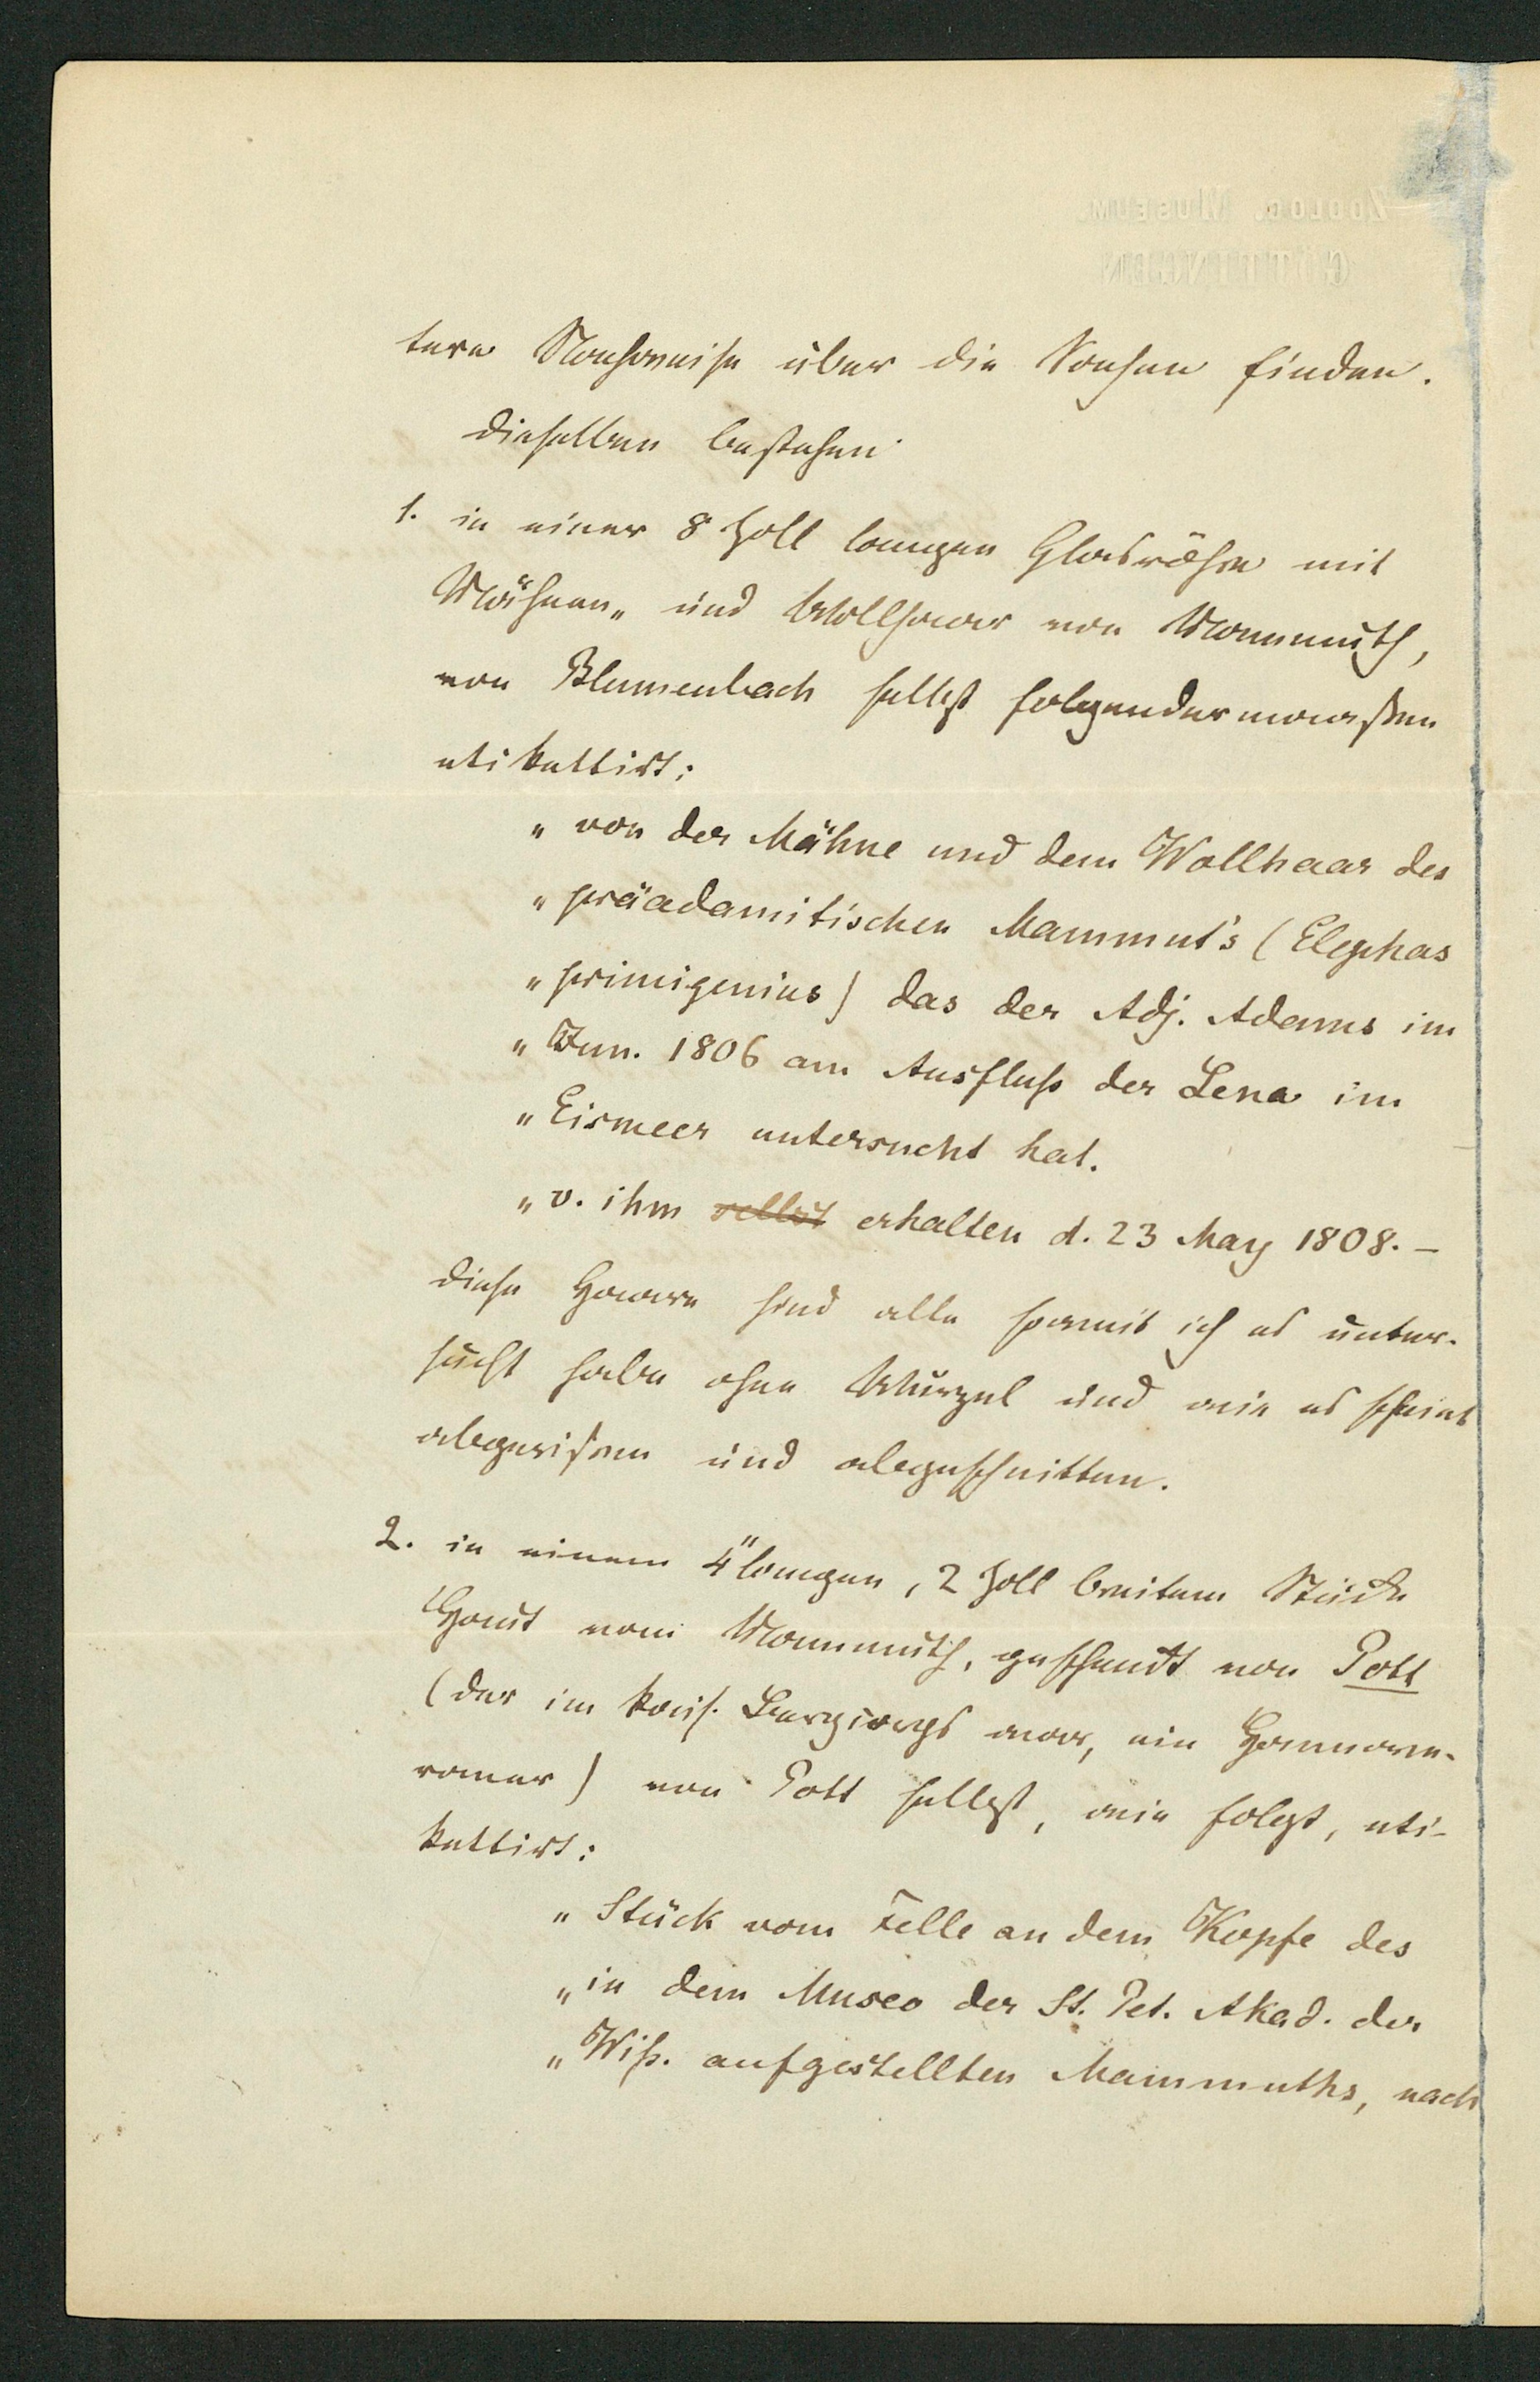 ZOOLOG. MUSEUM
GÖTTINGEN
tere Nachweise über die Sachen finden.
Dieselben bestehen
1. in einer 8 Zoll langen Glasröhre mit
Mähnen- und Wollhaar von Mammuth,
von Blumenbach selbst folgendermaaßen
etikettirt:
„ von der Mähne und dem Wollhaar des
„ präadamitischen Mammut's (Elephas
„ primigenius) das der Adj. Adams im
„ Jun. 1806 am Ausfluß der Lena im
„ Eismeer untersucht hat.
„ v. ihm selbst erhalten d. 23 May 1808. –
Diese Haare sind alle soweit ich es unter-
sucht habe ohne Wurzel und wie es scheint
abgerissen und abgeschnitten.
2. in einem 4" langen, 2 Zoll breiten Stücke
Haut vom Mammuth, geschenkt von Pott
(der im kais. war, ein Hannove-
raner) von Pott selbst, wie folgt, eti-
kettirt:
„ Stück vom Felle an dem Kopfe des
„ in dem Museo der St. Pet. Akad. der
„ Wiß. aufgestellten Mammuths, nach